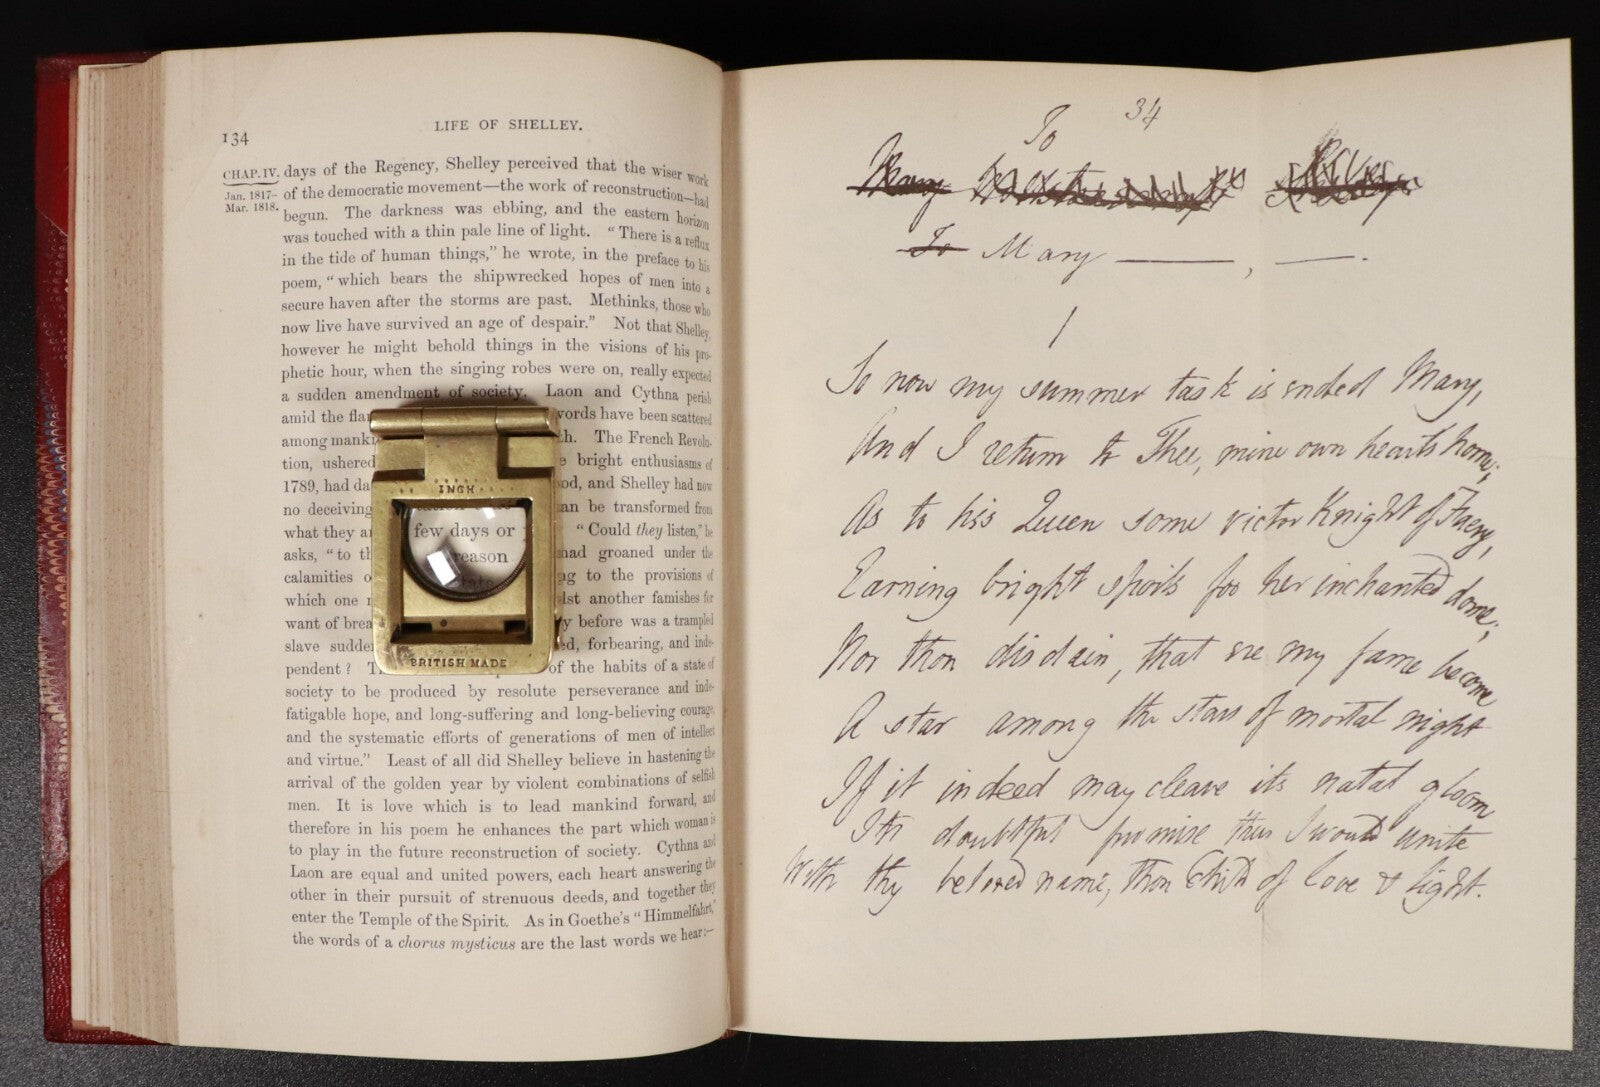 134
LIFE OF SHELLEY.
CHAP. IV.
Jan. 1817–
Mar. 1818.
days of the Regency, Shelley perceived that the wiser work
of the democratic movement—the work of reconstruction—had
begun. The darkness was ebbing, and the eastern horizon
was touched with a thin pale line of light. "There is a reflux
in the tide of human things," he wrote, in the preface to his
poem, "which bears the shipwrecked hopes of men into a
secure haven after the storms are past. Methinks, those who
now live have survived an age of despair." Not that Shelley,
however he might behold things in the visions of his pro-
phetic hour, when the singing robes were on, really expected
a sudden amendment of society. Laon and Cythna perish
amid the words have been scattered
among The French Revolu-
tion, ushered bright enthusiasms of
1789, had and Shelley had now
no deceiving can be transformed from
what they "Could they listen," he
asks, "to had groaned under the
calamities to the provisions of
which one another famishes for
want of before was a trampled
slave forbearing, and inde-
pendent? of the habits of a state of
society to be produced by resolute perseverance and inde-
fatigable hope, and long-suffering and long-believing courage
and the systematic efforts of generations of men of intellect
and virtue." Least of all did Shelley believe in hastening the
arrival of the golden year by violent combinations of selfish
men. It is love which is to lead mankind forward, and
therefore in his poem he enhances the part which woman is
to play in the future reconstruction of society. Cythna and
Laon are equal and united powers, each heart answering the
other in their pursuit of strenuous deeds, and together they
enter the Temple of the Spirit. As in Goethe's "Himmelfahrt,"
the words of a chorus mysticus are the last words we hear:—
INCH
few days or
reason
state
BRITISH MADE
34
To
Mary Wollstonecraft Shelley
To Mary ———, ——.
1
So now my summer task is ended Mary,
And I return to Thee, mine own hearts home;
As to his Queen some victor Knight of Faery,
Earning bright spoils for her inchanted dome;
Nor thou disdain, that ere my fame become
A star among the stars of mortal night
If it indeed may cleave its natal gloom
Its doubtful promise thus I would unite
With thy beloved name, thou Child of love & light.